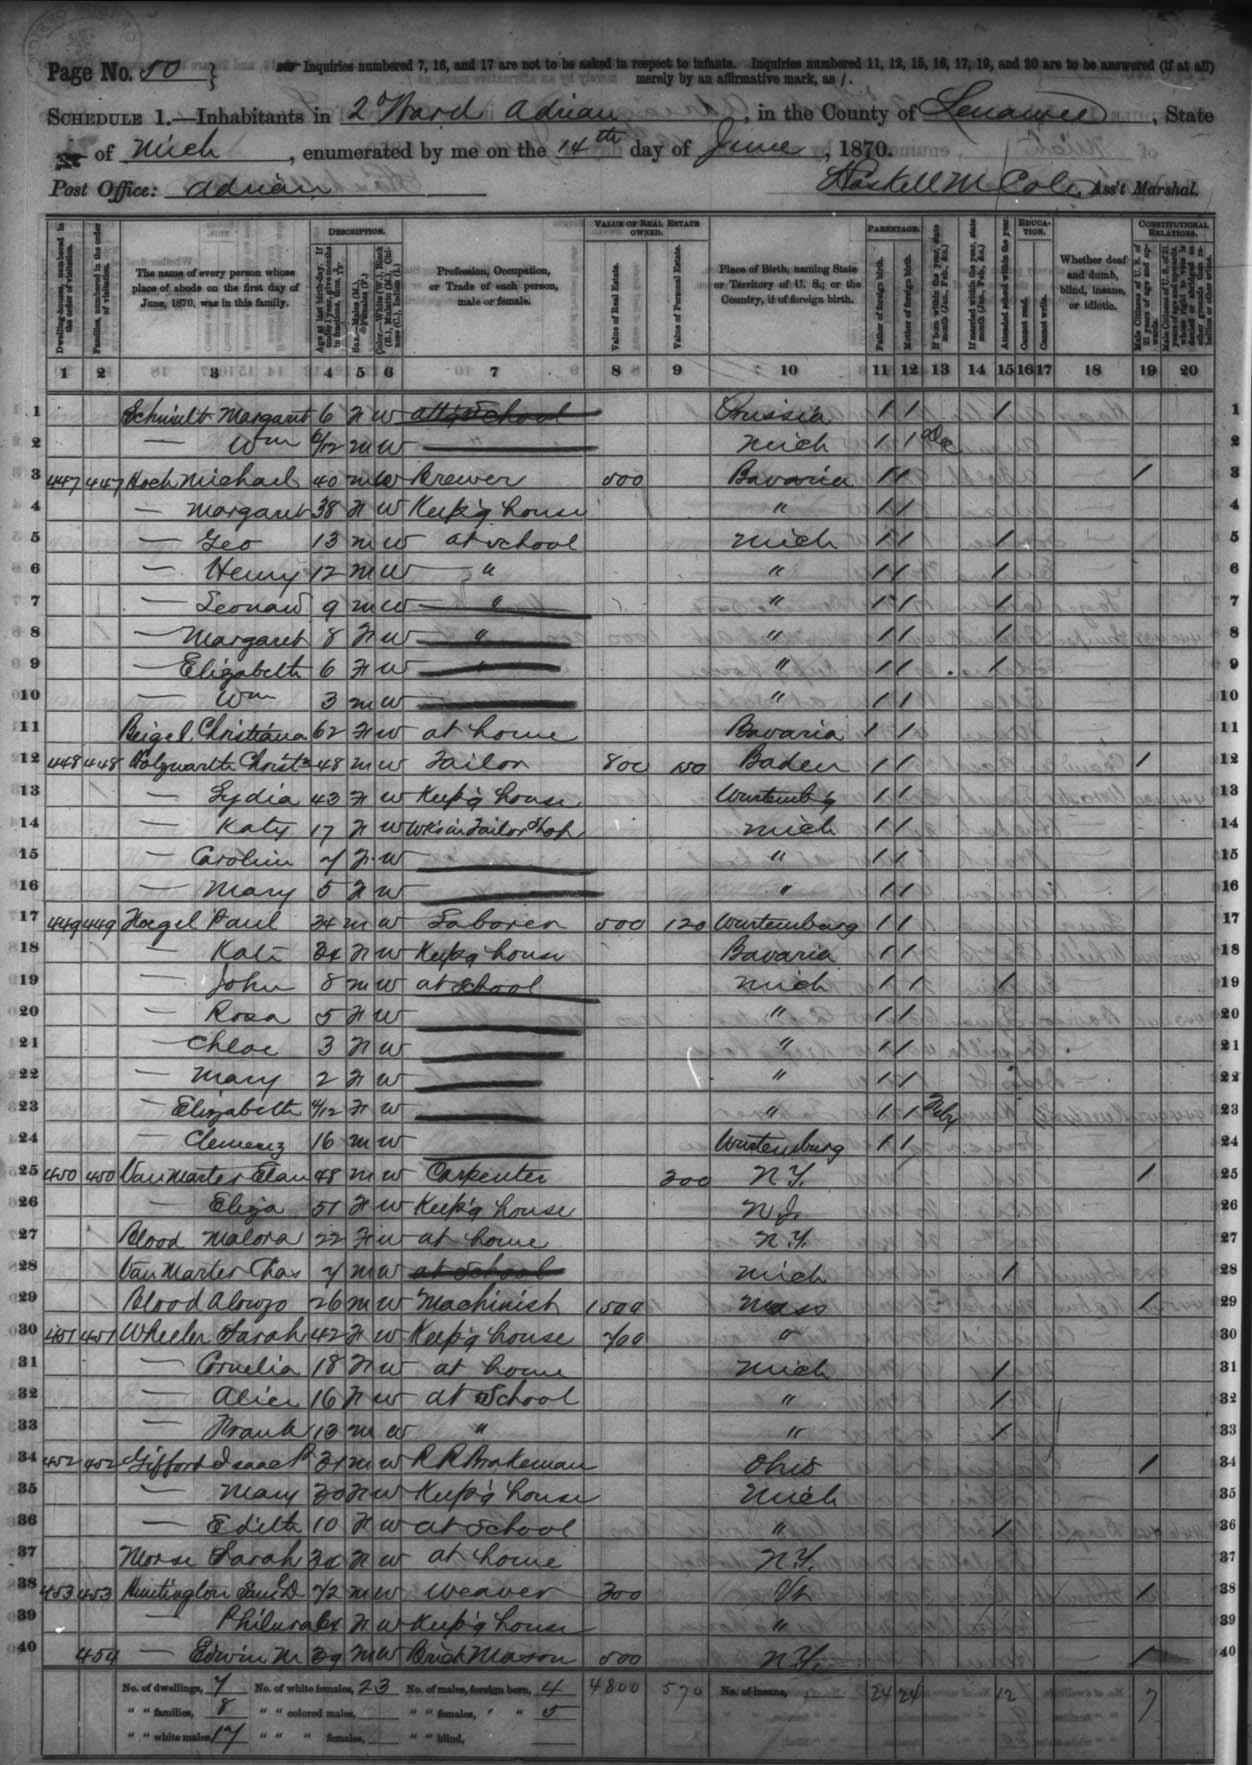 Page No. 50 } Inquiries numbered 7, 16, and 17 are not to be asked in respect to infants. Inquiries numbered 11, 12, 15, 16, 17, 19, and 20 are to be answered (if at all)
merely by an affirmative mark, as /.
SCHEDULE 1.—Inhabitants in 2 Ward Adrian, in the County of Lenawee, State
of Mich, enumerated by me on the 14th day of June, 1870.
Post Office: Adrian Haskell M Cole, Ass't Marshal.
DESCRIPTION. VALUE OF REAL ESTATE OWNED. PARENTAGE. EDUCATION. CONSTITUTIONAL RELATIONS.
Dwelling-houses, numbered in the order of visitation.
Families, numbered in the order of visitation.
The name of every person whose place of abode on the first day of June, 1870, was in this family.
Profession, Occupation, or Trade of each person, male or female.
Value of Real Estate.
Value of Personal Estate.
Place of Birth, naming State or Territory of U. S.; or the Country, if of foreign birth.
Father of foreign birth.
Mother of foreign birth.
If born within the year, state month (Jan., Feb., &c.)
If married within the year, state month (Jan., Feb., &c.)
Attended school within the year.
Cannot read.
Cannot write.
Whether deaf and dumb, blind, insane, or idiotic.
1 2 3 4 5 6 7 8 9 10 11 12 13 14 15 16 17 18 19 20
1 Schmidt Margaret 6 F W att'g School Prussia / / / 1
2 — Wm 6/12 M W " Mich / / Dec 2
3 447 447 Koch Michael 40 M W Brewer 500 Bavaria / / / 3
4 — Margaret 38 F W Keep'g house " / / 4
5 — Geo 13 M W at school Mich / / / 5
6 — Henry 12 M W " " / / / 6
7 — Leonard 9 M W " " / / / 7
8 — Margaret 8 F W " " / / / 8
9 — Elizabeth 6 F W " " / / / 9
10 — Wm 3 M W " / / 10
11 Beigel Christiana 62 F W at home Bavaria / / 11
12 448 448 Holzwarth Christn 48 M W Tailor 800 150 Baden / / / 12
13 — Lydia 43 F W Keep'g house Wurtemb'g / / 13
14 — Katy 17 F W Wks in Tailor Shop Mich / / 14
15 — Carolin 7 F W " / / 15
16 — Mary 5 F W " / / 16
17 449 449 Hoegel Paul 34 M W Laborer 500 120 Wurtemburg / / 17
18 — Kate F W Keep'g house Bavaria / / 18
19 — John 8 M W at School Mich / / / 19
20 — Rosa 5 F W " / / 20
21 — Chloe 3 F W " / / 21
22 — Mary 2 F W " / / 22
23 — Elizabeth 4/12 F W " / / Feby 23
24 — Clemenz 16 M W Wurtemburg / / 24
25 450 450 Van Marter Elan 48 M W Carpenter 200 N.Y. / 25
26 — Eliza 51 F W Keep'g house N.J. 26
27 Blood Malora 22 F W at home N.Y. 27
28 Van Marter Chas 7 M W at School Mich / 28
29 Blood Alonzo 26 M W Machinist 1500 Mass / 29
30 451 451 Wheeler Sarah 42 F W Keep'g house 700 " 30
31 — Cornelia 18 F W at home Mich / 31
32 — Alice 16 F W at School " / 32
33 — Frank 13 M W " " / 33
34 452 452 Gifford Isaac P 31 M W R R Brakeman Ohio / 34
35 — Mary 30 F W Keep'g house Mich 35
36 — Edith 10 F W at School " / 36
37 Morse Sarah F W at home N.Y. 37
38 453 453 Huntington Saml D 72 M W Weaver 300 Vt / 38
39 — Philura F W Keep'g house " 39
40 454 — Edwin M 39 M W Brick Mason 500 N.Y. / 40
No. of dwellings, 7 No. of white females, 23 No. of males, foreign born, 4 4800 570 No. of insane, 24 24 12 7
" " families, 8 " " colored males, " " females, " " 5
" " white males, 17 " " " females, " " blind,